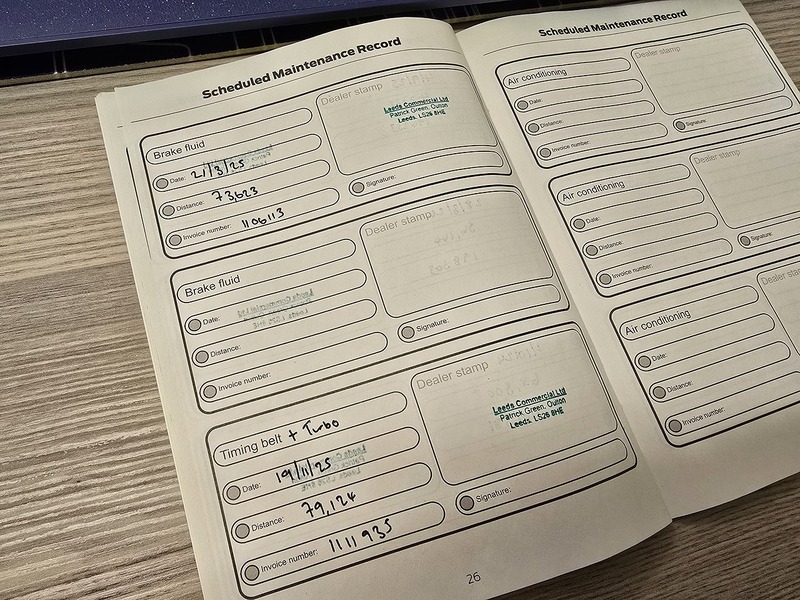 Scheduled Maintenance Record
Brake fluid
Date: 21/3/25
Distance: 73,623
Invoice number: 1106113
Dealer stamp
Leeds Commercial Ltd
Patrick Green, Oulton
Leeds, LS26 8HE
Signature:
Brake fluid
Date:
Distance:
Invoice number:
Dealer stamp
Signature:
Timing belt + Turbo
Date: 19/11/25
Distance: 79,124
Invoice number: 1111935
Dealer stamp
Leeds Commercial Ltd
Patrick Green, Oulton
Leeds, LS26 8HE
Signature:
26
Scheduled Maintenance Record
Air conditioning
Date:
Distance:
Invoice number:
Dealer stamp
Signature:
Air conditioning
Date:
Distance:
Invoice number:
Dealer stamp
Signature:
Air conditioning
Date:
Distance:
Invoice number:
Dealer s